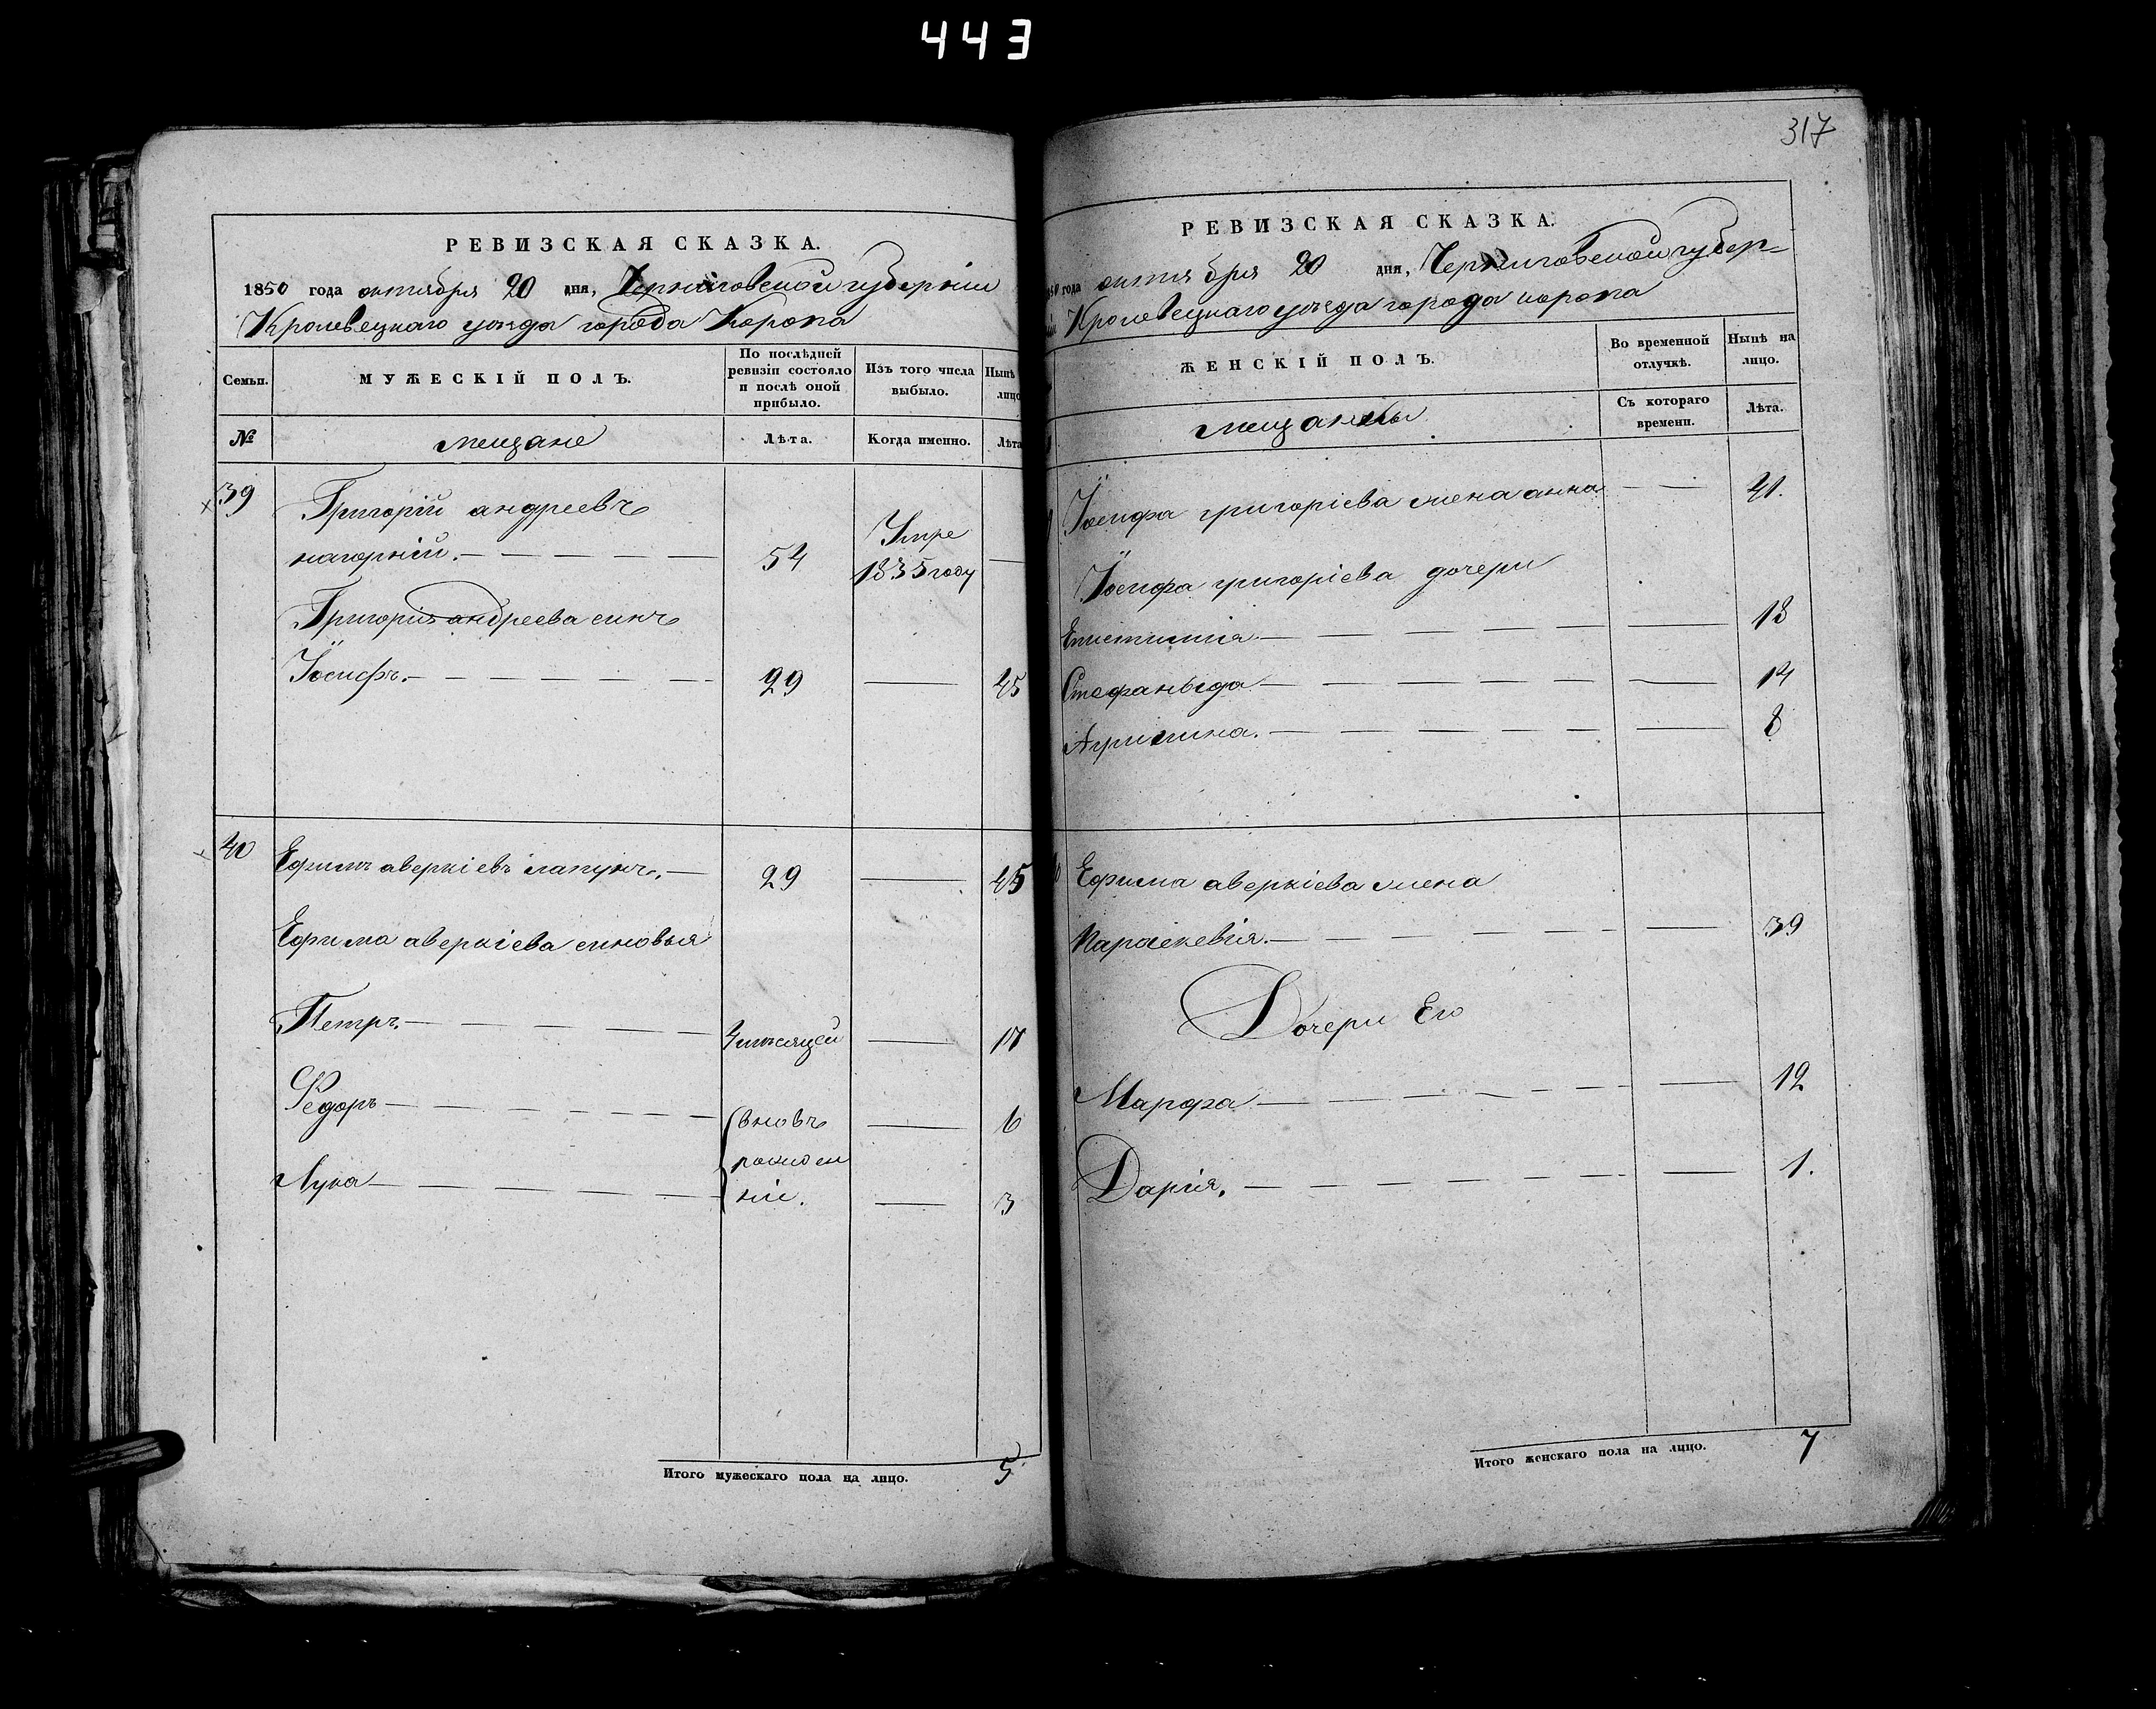 443
317
РЕВИЗСКАЯ СКАЗКА.
1850 года октября 20 дня, Черниговской губерніи
Кролевецкаго уезда города Коропа
Семьи.
МУЖЕСКІЙ ПОЛЪ.
По послѣдней ревизіи состояло и послѣ оной прибыло.
Изъ того числа выбыло.
Нынѣ лицо
№
мещане
Лѣта.
Когда именно.
Лѣта
39 Григорій андреевъ
нагорній. — 54 Умре 1835 году —
Григорія андреева синъ
Іосифъ. — 29 — 45
40 Ефимъ аверкіевъ лапунъ. — 29 — 45
Ефима аверкіева синовья
Петръ. — 4 месяцей — 17
Федоръ — вновь — 6
рожден
Лука — ніи. — 3
Итого мужескаго пола на лицо. 5
РЕВИЗСКАЯ СКАЗКА.
1850 года октября 20 дня, Черниговской губер-
ніи Кролевецкаго уезда города коропа
ЖЕНСКІЙ ПОЛЪ.
Во временной отлучкѣ.
Нынѣ на лицо.
мещанки
Съ котораго времени.
Лѣта.
Іосифа григоріева жена анна — 41.
Іосифа григоріева дочери
Епистимія — 18
Стефанида — 14
Агрипина. — 8
Ефима аверкіева жена
Параскевія. — 39
Дочери Его
Марфа — 12
Дарія. — 1.
Итого женскаго пола на лицо. 7